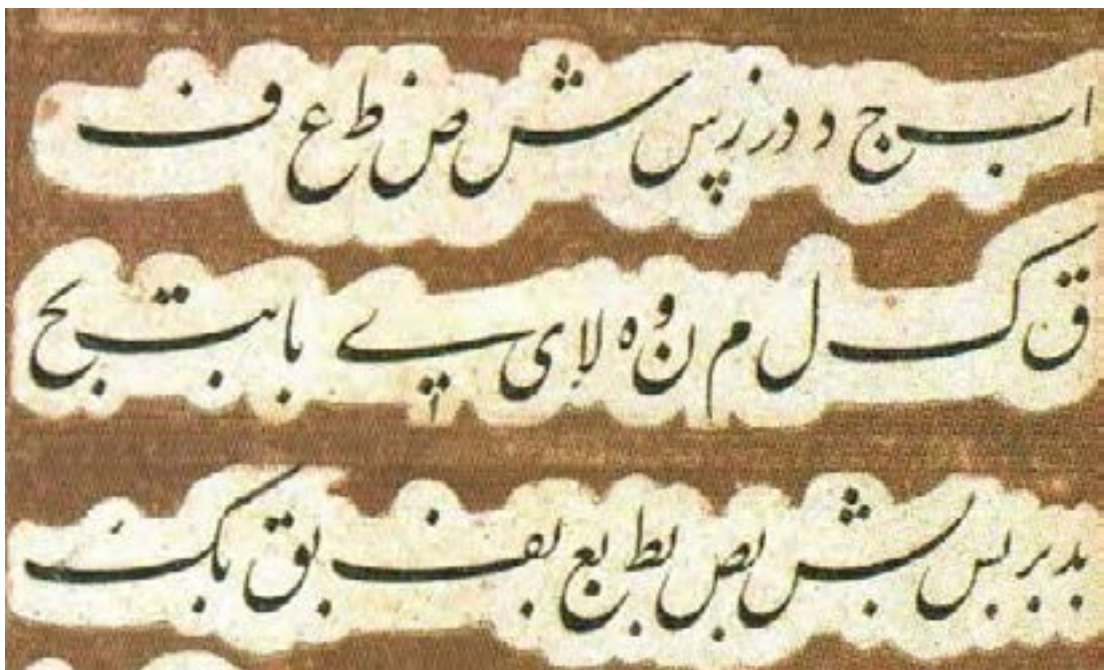 ا ب ج د د ر ز س ش ض ط ع ف
ق ک ل م ن و ه لا ی ے با بت بج
بد بر بس بش بص بط بع بف بق بک